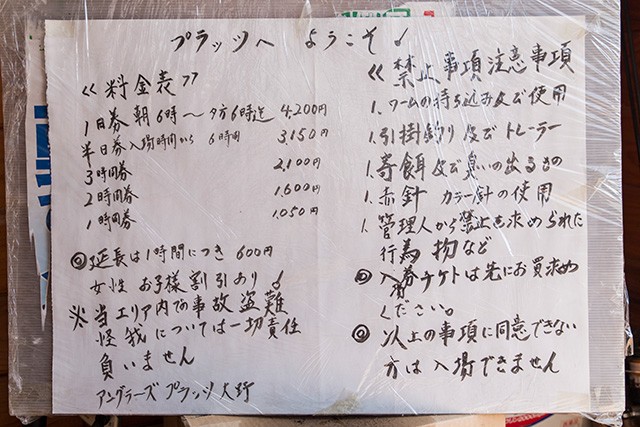 プラッツへ ようこそ!
<<料金表>>
1日券 朝6時〜夕方6時迄 4,200円
半日券 入場時間から 6時間 3,150円
3時間券 2,100円
2時間券 1,600円
1時間券 1,050円
◎延長は1時間につき 600円
女性 お子様割引あり!
※当エリア内での事故 盗難
怪我については一切責任
負いません
アングラーズ プラッツ大野
<<禁止事項 注意事項
1. ワームの持ち込み及び使用
1. 引掛釣り及びトレーラー
1. 寄餌及び臭いの出るもの
1. 赤針 カラー針の使用
1. 管理人から禁止を求められた
行為 物など
◎入券チケトは先にお買求め
ください。
◎以上の事項に同意できない
方は入場できません